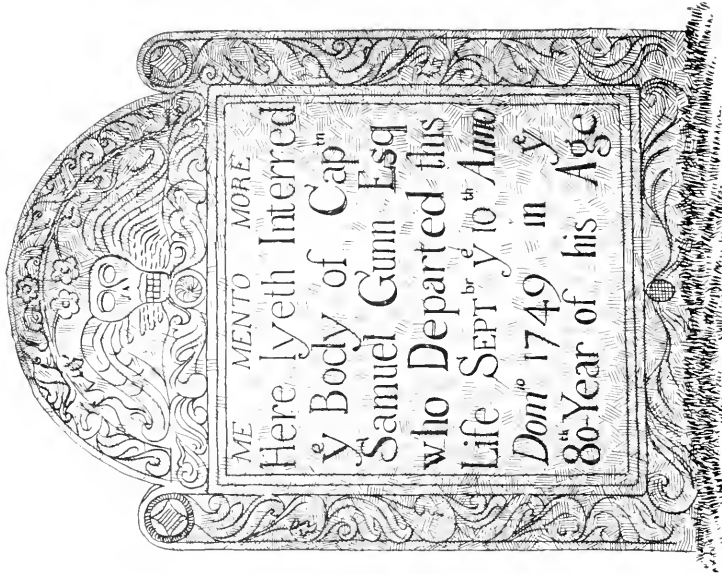 ME MENTO MORE
Here lyeth Interred
yͤ Body of Capᵗⁿ
Samuel Gunn Esq
who Departed this
Life SEPTᵇʳ yᵉ 10ᵗʰ Anno
Domⁱᵒ 1749 in yᵉ
80ᵗʰ Year of his Age